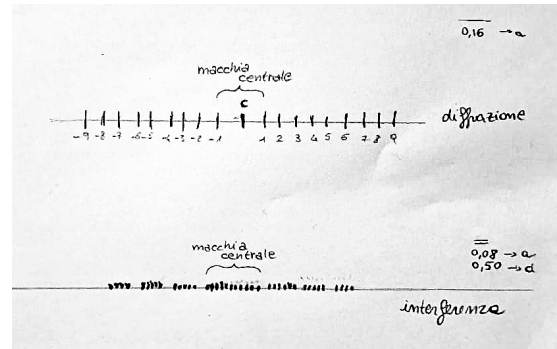 0,16 → a
macchia
centrale
C
-9 -8 -7 -6 -5 -4 -3 -2 -1 1 2 3 4 5 6 7 8 9
diffrazione
macchia
centrale
0,08 → a
0,50 → d
interferenza